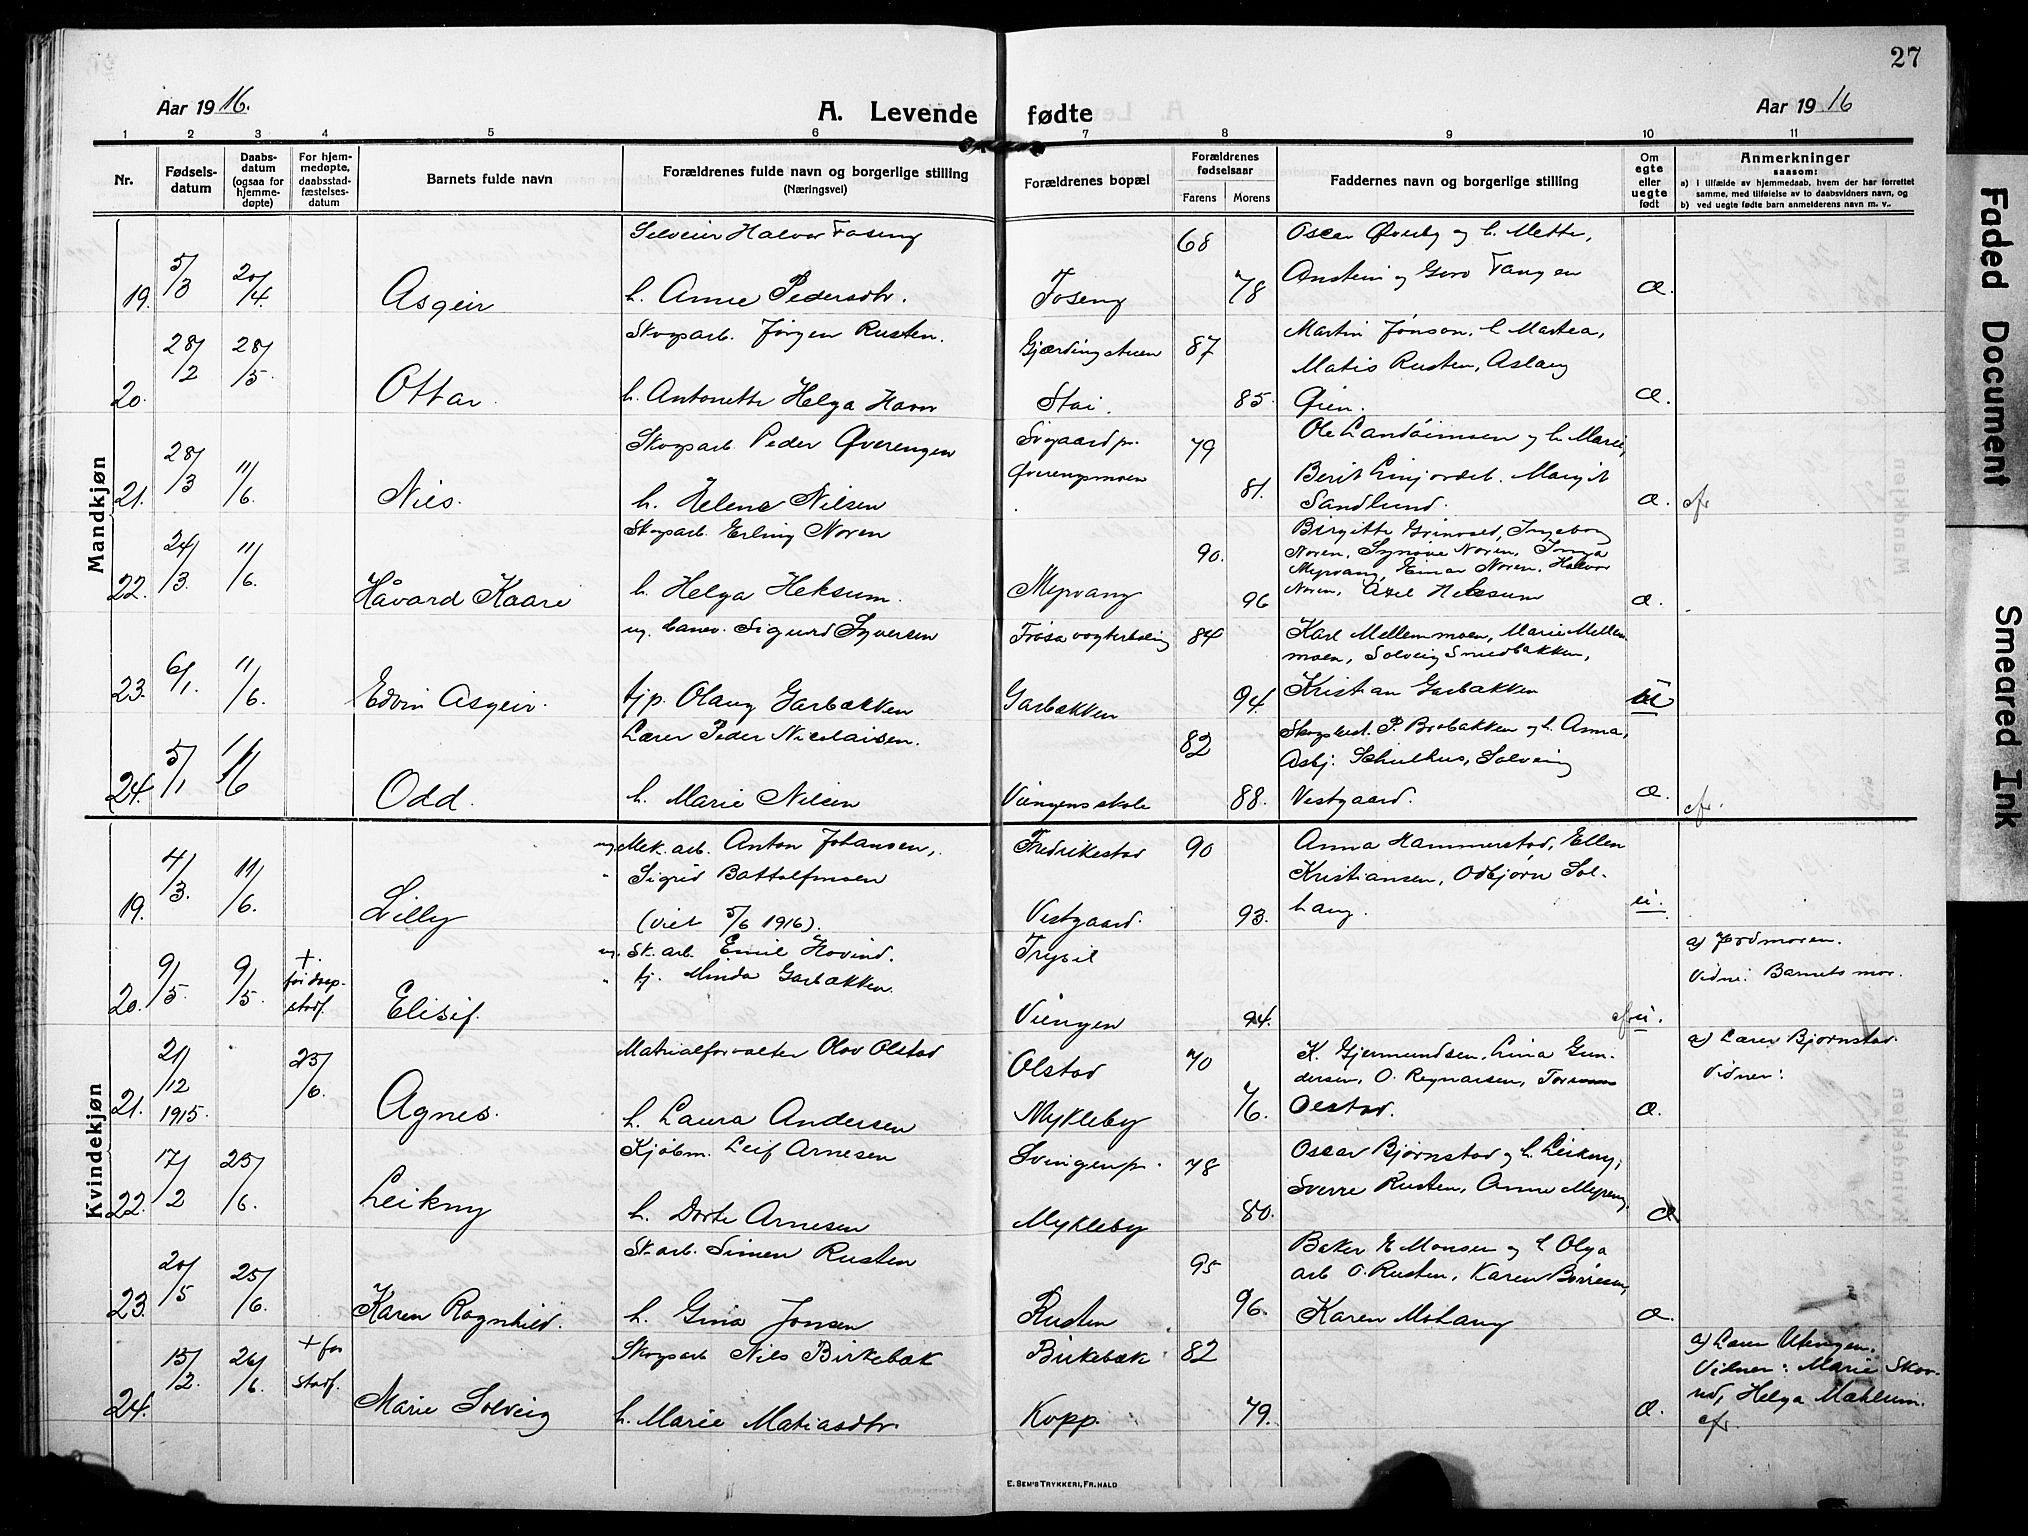 27
Aar 1916.
A. Levende fødte
Aar 1916
1 2 3 4 5 6 7 8 9 10 11
Nr.
Fødsels-
datum
Daabs-
datum
(ogsaa for
hjemme-
døpte)
For hjem-
medøpte,
daabsstad-
fæstelses-
datum
Barnets fulde navn
Forældrenes fulde navn og borgerlige stilling
(Næringsvei)
Forældrenes bopæl
Forældrenes
fødselsaar
Farens Morens
Faddernes navn og borgerlige stilling
Om
egte
eller
uegte
født
Anmerkninger
saasom:
a) I tilfælde av hjemmedaab, hvem der har forrettet
samme, med tilføielse av to daabsvidners navn, og
b) ved uegte fødte barn anmelderens navn m. v..
Mandkjøn
Halvor Foseng 68 Oscar Øverby og h. Mette,
19. 5/3 20/4. Asgeir h. Anne Pedersdtr. Foseng 78 Anstein og Guro Tangen Æ.
Skogsarb. Jørgen Rusten. 87 Martin Jonson, h. Martea,
28/2 28/5. Matis Rusten, Aslaug
20. Ottar. h. Antonette Helga Havn Stai. 85. Øien. Æ.
Skogsarb. Peder Øverengen 79 Ole h. Marie,
28/3 11/6. Øverengsmoen Berit Margit
21. Nils. h. Helene Nilsen 81. Sandlund. Æ. cfr
Skogsarb. Erling Noren 90. Birgitte Ingeborg
24/3. 11/6. Noren, Synøve Noren, Inga
Myrvang, Einar Noren, Halvor
22. Håvard Kaare h. Helga Heksum. Myrvang 96 Noren, Axel Heksum Æ.
ug. Sigurd Syversen 84 Karl Mellemmoen, Marie Mellem-
moen, Solveig Smedbakken,
23. 6/1. 11/6. Edvin Asgeir. tjp. Olaug Garbækken Garbækken 94. Kristian Garbækken
Lærer Peder Nicolaisen. 82 P. Brobakken og h. Anna,
5/1 11/6 Asbj. Schulhus, Solveig
24. Odd. h. Marie Nilsen Viengens skole 88. Vestgaard. Æ. cfr.
Kvindekjøn
ug. Mek. arb. Anton Johansen, Fredrikstad 90 Anna Hammerstad, Ellen
4/3. 11/6. " Sigrid Battolfmoen Kristiansen, Odbjørn Sol-
19. Lilly (viet 5/6 1916). Vestgaard. 93. haug. u.
ug. Sk. arb. Emil Hovind. Trysil a) Jordmoren.
9/5. 9/5. + før daap- " tj. Minda Garbækken. Vidne: Barnets mor.
20. stadf. Elisif. Viengen 94. cfr u.
21/12 25/6. Matrialforvalter Olav Olstad Olstad 70 K. Gjermundsen, Lina Gun- a) Lærer Bjørnstad.
dersen, O. Regnarsen, Vidner:
21. 1915. Agnes. h. Laura Andersen Mykleby 76. Olstad. Æ.
17/2 25/6. Kjøbm. Leif Arnesen Svingen pr. 78 Oscar Bjørnstad og h. Leikny,
Sverre Rusten, Anne Myreng,
22. Leikny h. Dorte Arnesen Mykleby 80. Æ
Sk. arb. Simen Rusten 95 Baker E. Monsen og h. Olga
20/5 25/6. arb O. Rusten, Karen Børresen,
23. Karen Ragnhild. h. Gina Jonsen Rusten 96. Karen Mohaug Æ.
15/2. 26/6. + før Skogsarb Nils Birkebæk Birkebæk 82 a) Lærer Utengen.
stadf. Vidner: Marie Skov-
24. Marie Solveig h. Marie Matiasdtr. Kopp 79. Æ. Helga Mæhlum.
cfr.
E. SEM'S TRYKKERI, FR.HALD
Faded Document
Smeared Ink